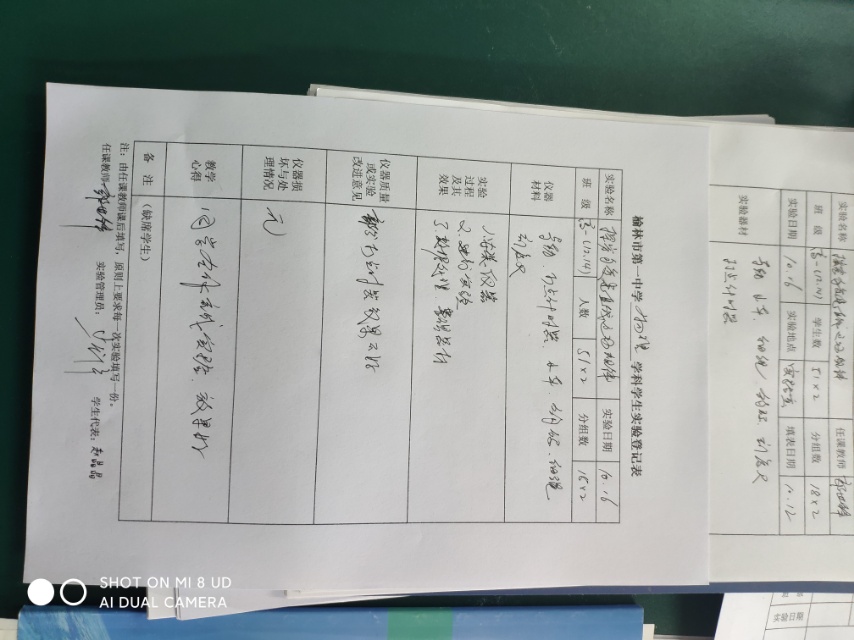 榆林市第一中学物理学科学生实验登记表
实验名称 探究匀变速直线运动规律 实验日期 10.16
班级 高一(13.14) 人数 51×2 分组数 18×2
仪器材料 导轨、打点计时器、小车、钩码、细绳
刻度尺
实验过程及其效果 1.安装仪器
2.进行实验
3.数据处理、
仪器质量或实验改进意见 部分打点计时器效果不好
仪器损坏与处理情况 无
教学心得
效果好
备注 (缺席学生)
注：由任课教师课后填写，原则上要求每一次实验填写一份。
任课教师： 实验管理员： 学生代表：
实验名称 任课教师
班级 高一(13.14) 学生数 51×2 分组数 18×2
实验日期 10.16 实验地点 实验室 填表日期 10.12
实验器材 导轨 小车 细绳 钩码 刻度尺
打点计时器
实验日期
SHOT ON MI 8 UD
AI DUAL CAMERA